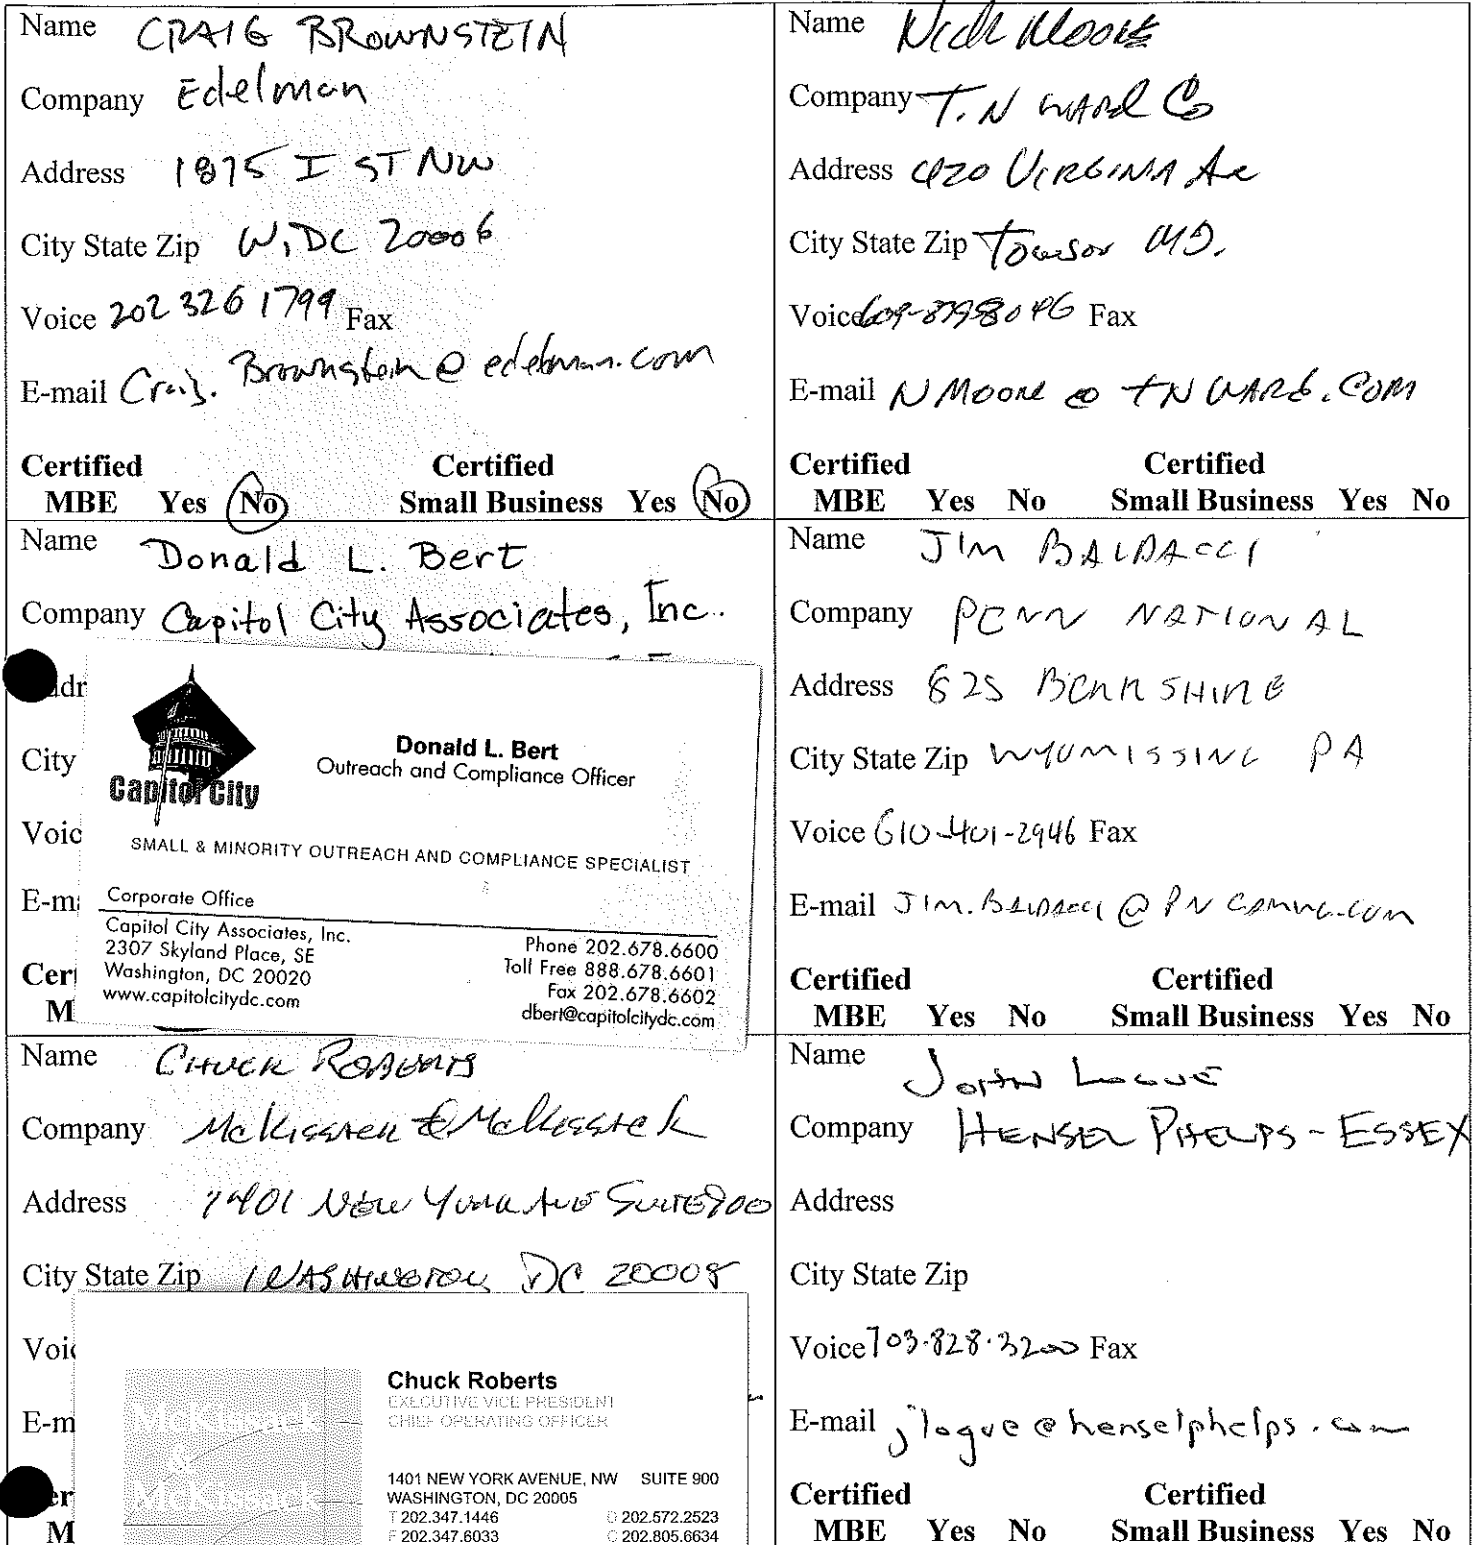 Name CRAIG BROWNSTEIN
Company Edelman
Address 1875 I ST NW
City State Zip W, DC 20006
Voice 202 326 1799 Fax
E-mail Craig.Brownstein@edelman.com
Certified Certified
MBE Yes No Small Business Yes No
Name Nick Moore
Company T.N WARD Co
Address 420 VIRGINIA Ave
City State Zip Towson MD.
Voice Fax
E-mail NMOORE @ TNWARD.COM
Certified Certified
MBE Yes No Small Business Yes No
Name Donald L. Bert
Company Capitol City Associates, Inc.
City
Capitol City
Donald L. Bert
Outreach and Compliance Officer
SMALL & MINORITY OUTREACH AND COMPLIANCE SPECIALIST
Corporate Office
Capitol City Associates, Inc.
2307 Skyland Place, SE
Washington, DC 20020
www.capitolcitydc.com
Phone 202.678.6600
Toll Free 888.678.6601
Fax 202.678.6602
dbert@capitolcitydc.com
Name JIM BALDACCI
Company PENN NATIONAL
Address 825 BERKSHIRE
City State Zip WYOMISSING PA
Voice 610-401-2946 Fax
E-mail JIM.BALDACCI@PNGAMING.COM
Certified Certified
MBE Yes No Small Business Yes No
Name CHUCK ROBERTS
Company McKissack & McKissack
Address 1401 NEW YORK AVE SUITE 900
City State Zip WASHINGTON DC 20005
McKissack
&
McKissack
Chuck Roberts
EXECUTIVE VICE PRESIDENT
CHIEF OPERATING OFFICER
1401 NEW YORK AVENUE, NW SUITE 900
WASHINGTON, DC 20005
T 202.347.1446 O 202.572.2523
F 202.347.6033 C 202.805.6634
Name JOHN LOGUE
Company HENSEL PHELPS - ESSEX
Address
City State Zip
Voice 703.828.3200 Fax
E-mail jlogue@henselphelps.com
Certified Certified
MBE Yes No Small Business Yes No